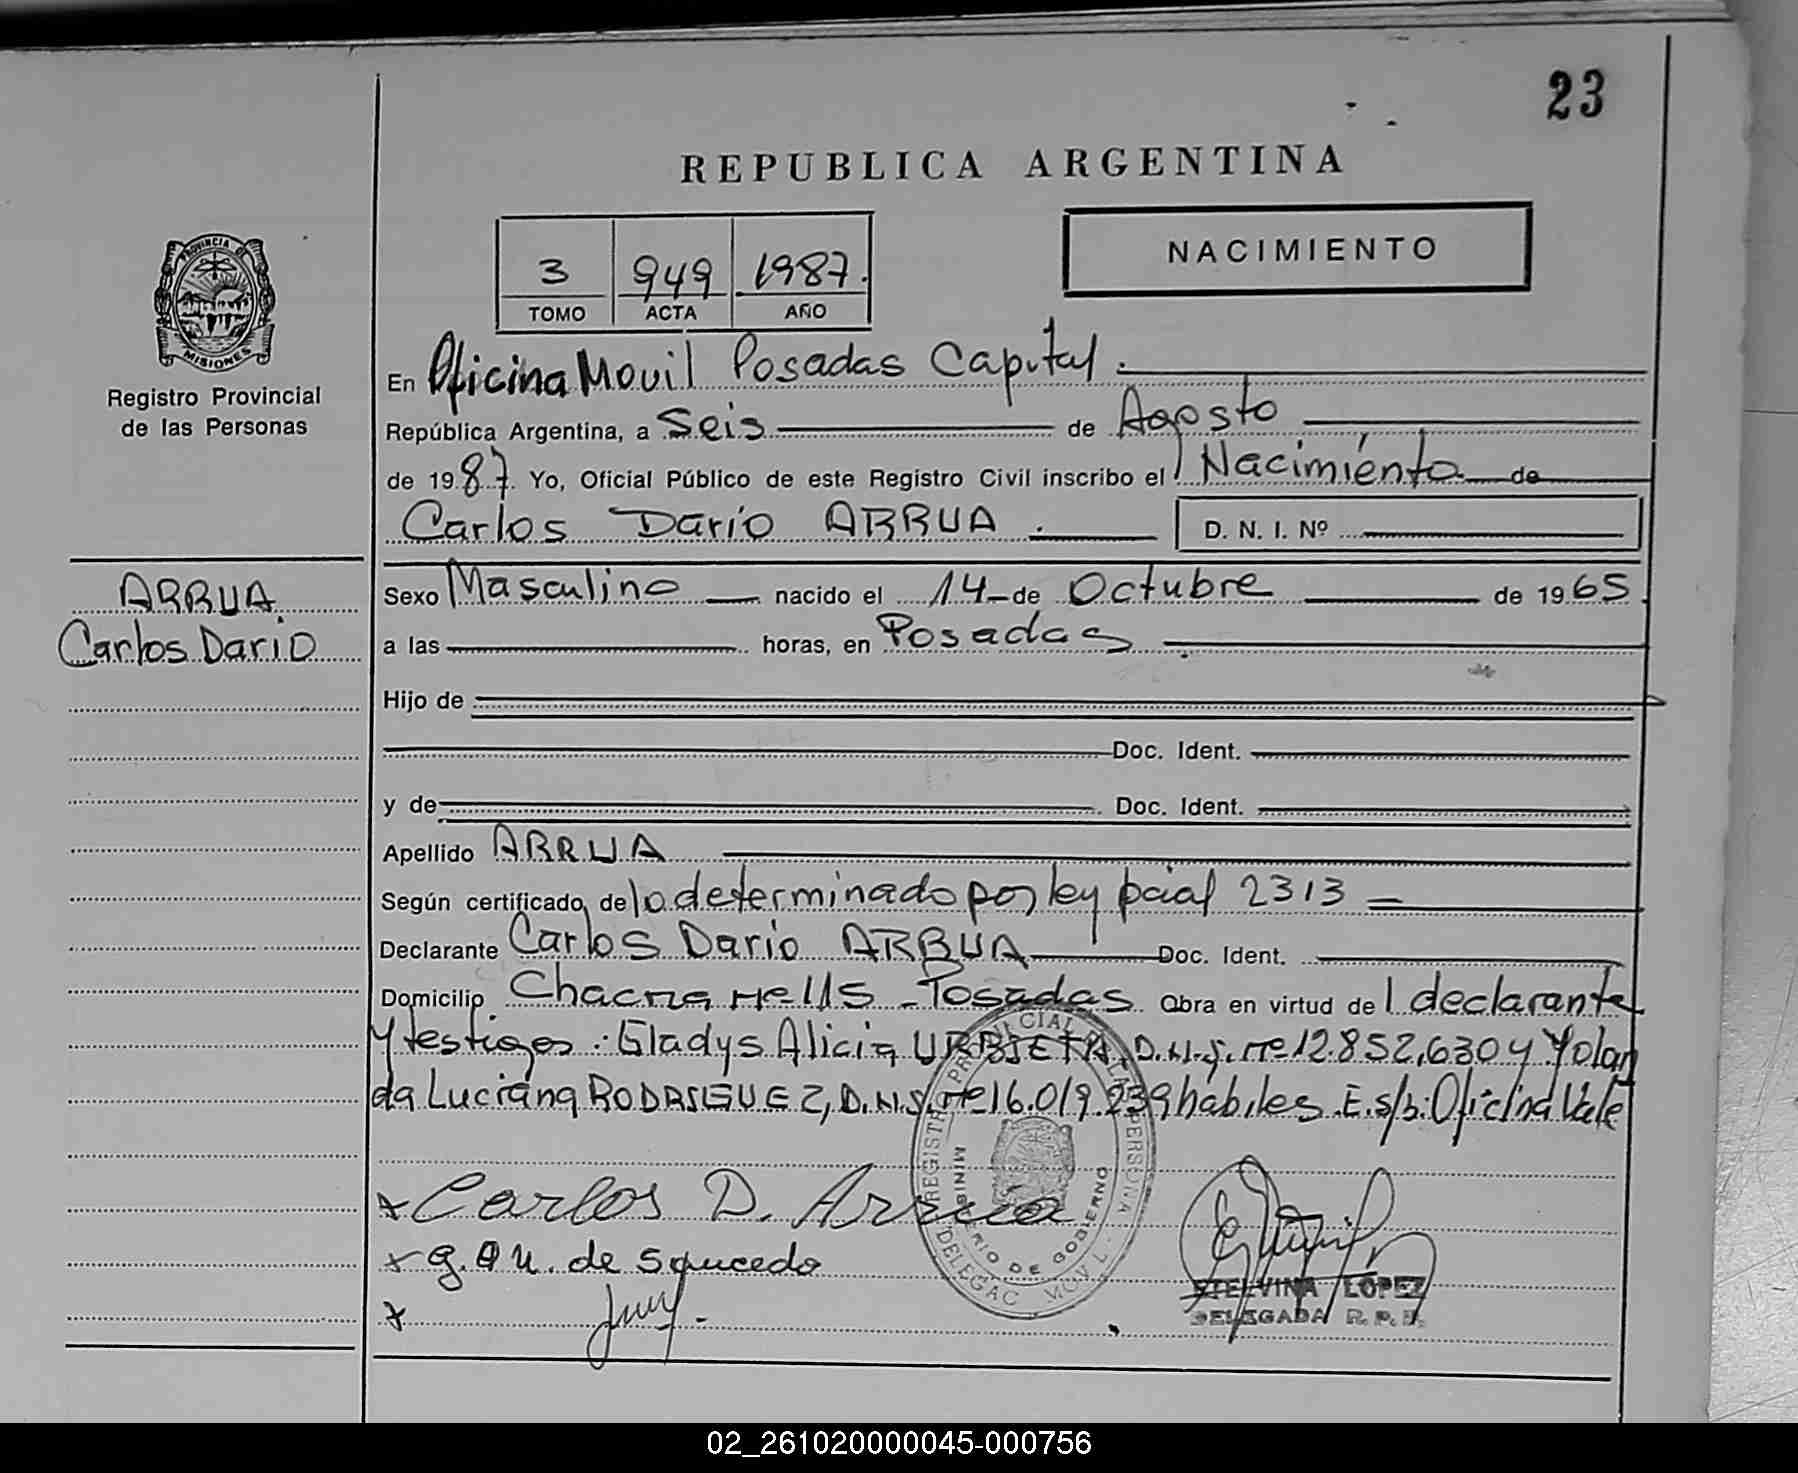 23
REPUBLICA ARGENTINA
3 949 1987.
TOMO ACTA AÑO
NACIMIENTO
PROVINCIA DE MISIONES
Registro Provincial
de las Personas
En Oficina Movil Posadas Capital.
República Argentina, a Seis de Agosto
de 1987. Yo, Oficial Público de este Registro Civil inscribo el Nacimiento de
Carlos Dario ARRUA. D. N. I. Nº
ARRUA
Carlos Dario
Sexo Masculino nacido el 14 de Octubre de 1965
a las horas, en Posadas
Hijo de
Doc. Ident.
y de Doc. Ident.
Apellido ARRUA
Según certificado de lo determinado por ley pcial 2313
Declarante Carlos Dario ARRUA Doc. Ident.
Domicilio Chacra Posadas Obra en virtud de l declarante
y testigos: Gladys Alicia URBIETA, D.N.I. nº 12.852.630 y Yolan
da Luciana RODRIGUEZ, D.N.I. nº 16.019.239 habiles. E.s/b: Oficina Vale
Carlos D. Arrua
MINISTERIO DE GOBIERNO
g. a u. de Saucedo
ETELVINA LOPEZ
DELEGADA R. P. P.
02_261020000045-000756